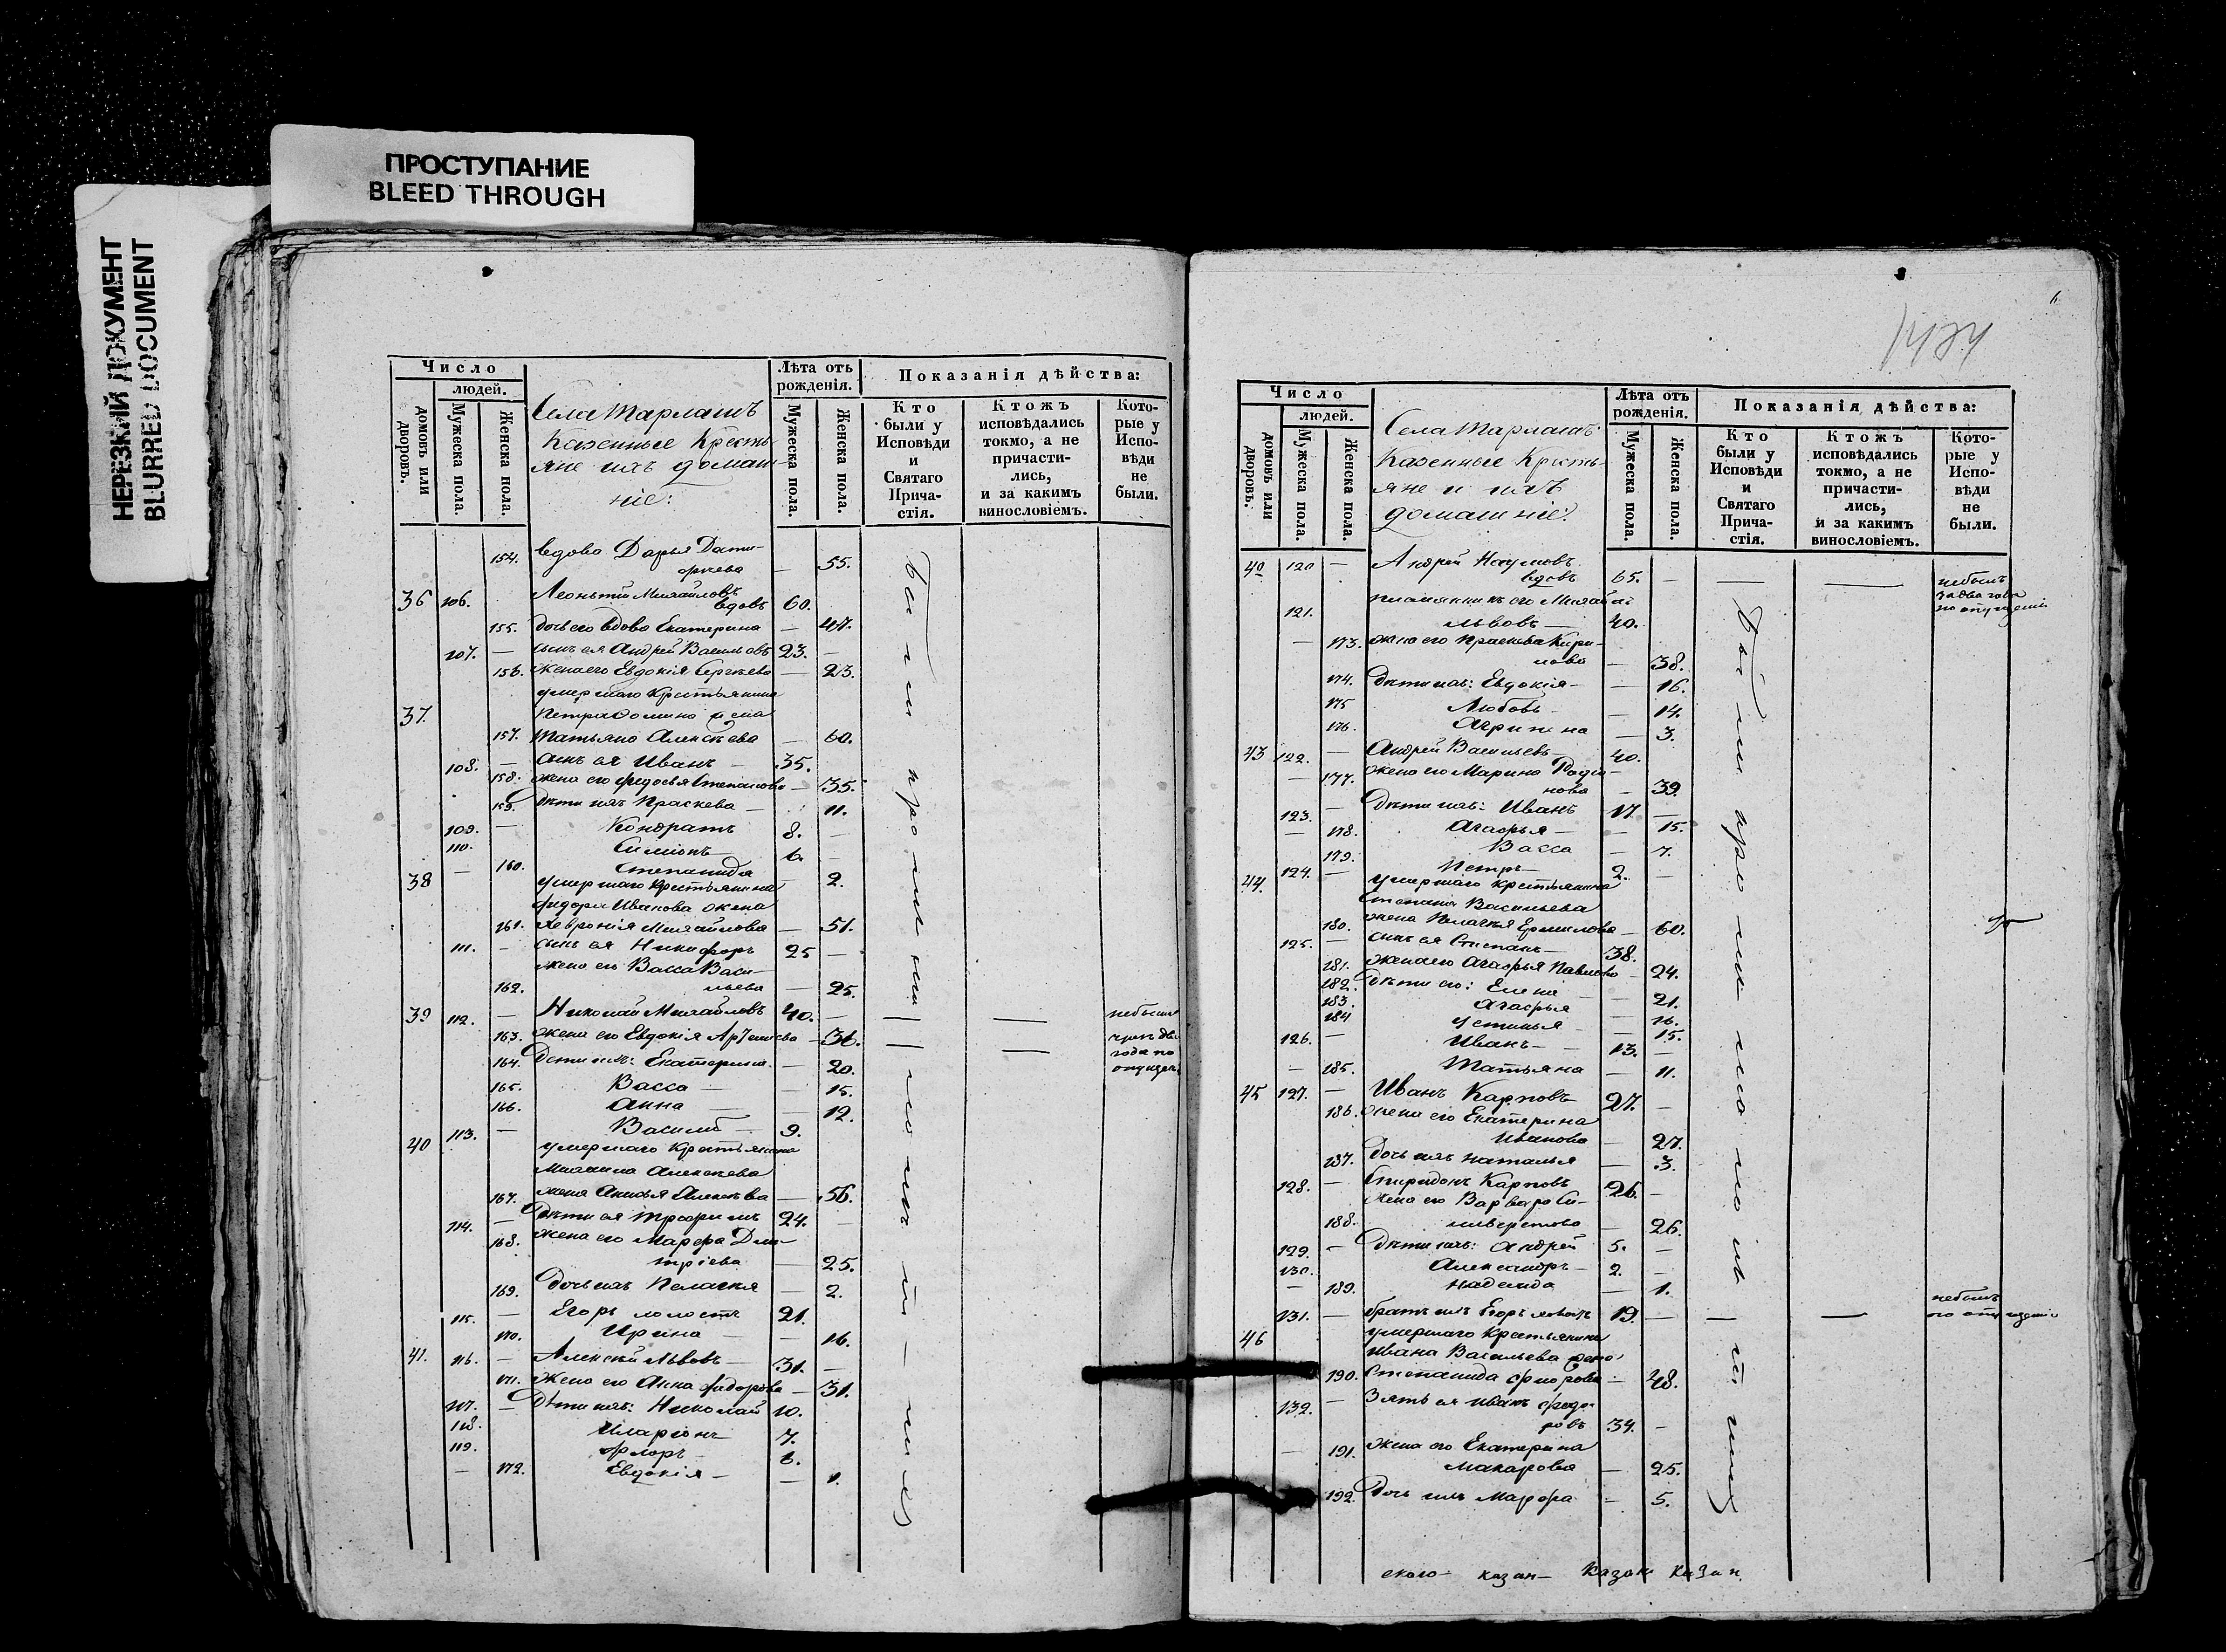 ПРОСТУПАНИЕ
BLEED THROUGH
НЕРЕЗКИЙ ДОКУМЕНТ
BLURRED DOCUMENT
Число
людей.
домовъ или дворовъ.
Мужеска пола.
Женска пола.
Села Тарлашъ
Казенные Кресть-
яне ихъ домаш-
ніе:
Лѣта отъ рожденія.
Мужеска пола.
Женска пола.
Показанія дѣйства:
Кто были у Исповѣди и Святаго Прича-стія.
Ктожъ исповѣдались токмо, а не причасти-лись, и за какимъ винословіемъ.
Кото-рые у Испо-вѣди не были.
154. вдова Дарья
— 55.
36 106. Леонтий Михайловъ
вдовъ 60.
155. дочь его вдова Екатерина — 47.
107. — сынъ ея Андрей Васильевъ 23. —
156. жена его Евдокія Сергѣева — 23.
умершаго Крестьянина
37. Петра жена
157. Татьяна Алексѣева — 60.
108. — сынъ ея Иванъ — 35.
158. жена его Федосья Степанова — 35.
159. Дѣти ихъ Праскева — 11.
109. — Кондратъ 8. —
110. Симіонъ 6. —
— 160. Степанида — 2.
38 умершаго Крестьянина
Федора Иванова жена
161. Хавронія Михайлова — 51.
111. — сынъ ея Никифоръ 25 —
жена его Васса Васи-
162. льева — 25.
39 112. — Николай Михайловъ 40. — | — небылъ
163. жена его Евдокія — 36. | —
года по
164. Дети ихъ: Екатерина — 20.
165. Васса — 15.
166. Анна — 12.
113. — Василій — 9.
40 умершаго Крестьянина
Михаила Алексѣева
167. жена Анисья Алексѣева — 56.
114. — Дѣти ея Трофимъ 24. —
168. жена его Марфа Дми-
тріева — 25.
169. Дочь ихъ Пелагея — 2.
115. — Егоръ холостъ 21.
170. Ирина — 16.
41. 116. — Алексѣй Львовъ — 31. —
171. Жена его Анна Федорова — 31.
117. — Дѣти ихъ: Николай 10.
118. Иларіонъ 7.
119. Флоръ — 6.
— 172. Евдокія — — 1.
Число
людей.
домовъ или дворовъ.
Мужеска пола.
Женска пола.
Села Тарлашъ
Казенные Кресть-
яне и ихъ
домашніе:
Лѣта отъ рожденія.
Мужеска пола.
Женска пола.
Показанія дѣйства:
Кто были у Исповѣди и Святаго Прича-стія.
Ктожъ исповѣдались токмо, а не причасти-лись, и за какимъ винословіемъ.
Кото-рые у Испо-вѣди не были.
120 — Андрей Наумовъ
вдовъ 65. — — — небылъ
племянникъ его Михайла
121. Львовъ — 40.
— 173. жена его Праскева Кири-
лова — 38.
174. Дѣти ихъ: Евдокія — — 16.
175 Любовь — 14.
176. Агрипена — 3.
43 122. — Андрей Васильевъ 40.
— 177. жена его Марина Родіо-
нова — 39.
123. — Дѣти ихъ: Иванъ 17 —
— 178. Агафья — — 15.
179. Васса — 7.
124. — Петръ 2. —
44. умершаго крестьянина
Степана Васильева
180. жена Пелагея Ермилова — 60.
125. — сынъ ея Степанъ — 38.
181. жена его Агафья Павлова — 24.
182. Дѣти его: Елена — 21.
183. Агафья — 16.
184 Устинья — 15.
126. — Иванъ — 13. —
— 185. Татьяна — 11.
45 127. — Иванъ Карповъ 27. —
186. жена его Екатерина
Иванова — 27.
187. Дочь ихъ Наталья — 3.
128. — Спиридонъ Карповъ 26. —
жена его Варвара Си-
188. ливерстова — 26.
129. — Дѣти ихъ: Андрей 5. —
130. Александръ — 2. —
— 189. Надежда — 1.
131. — братъ ихъ Егоръ 19. — | — небылъ
46 умершаго Крестьянина
Ивана Васильева жена
190. Степанида — 48.
132. — Зять ея Иванъ Федо-
ровъ 34. —
— 191. жена его Екатерина
Макарова — 25.
192. Дочь ихъ Марфа — 5.
казан— Казан Казан